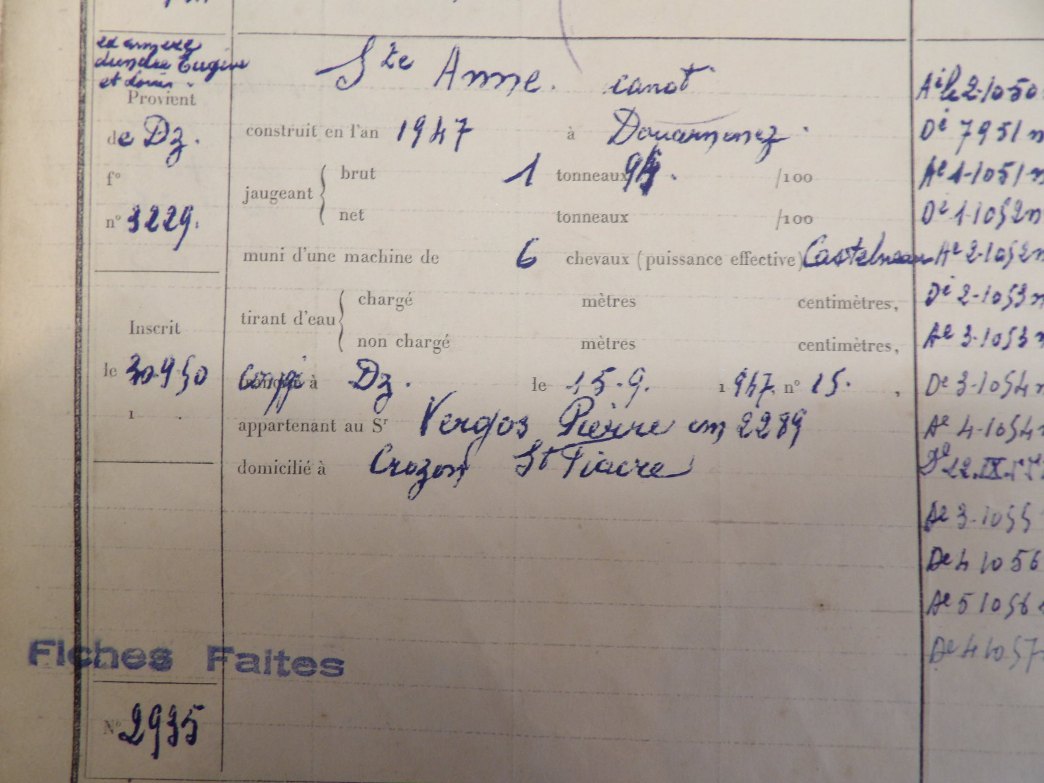 et
Provient
de Dz.
f°
n° 3229.
Inscrit
le 30.9.50
1
Fiches Faites
N° 2935
Ste Anne. canot
construit en l'an 1947 à Douarnenez.
jaugeant
brut 1 tonneaux 94. /100
net tonneaux /100
muni d'une machine de 6 chevaux (puissance effective) Castelneau
tirant d'eau
chargé mètres centimètres,
non chargé mètres centimètres,
à Dz. le 15.9. 1947. n° 15. ,
appartenant au Sr Vergos Pierre cm 2289
domicilié à Crozon St Fiacre
Ae 1-1051
De 1-1052
Ae 2-1052
De 2-1053
Ae 3-1053
De 3-1054
Ae 4-1054
Ae 3-1055
De 4 1056
Ae 5 1056
De 4 1057